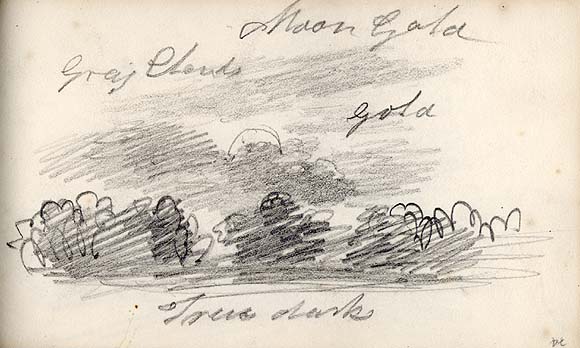 Moon Gold
Gray Clouds
Gold
Trees dark